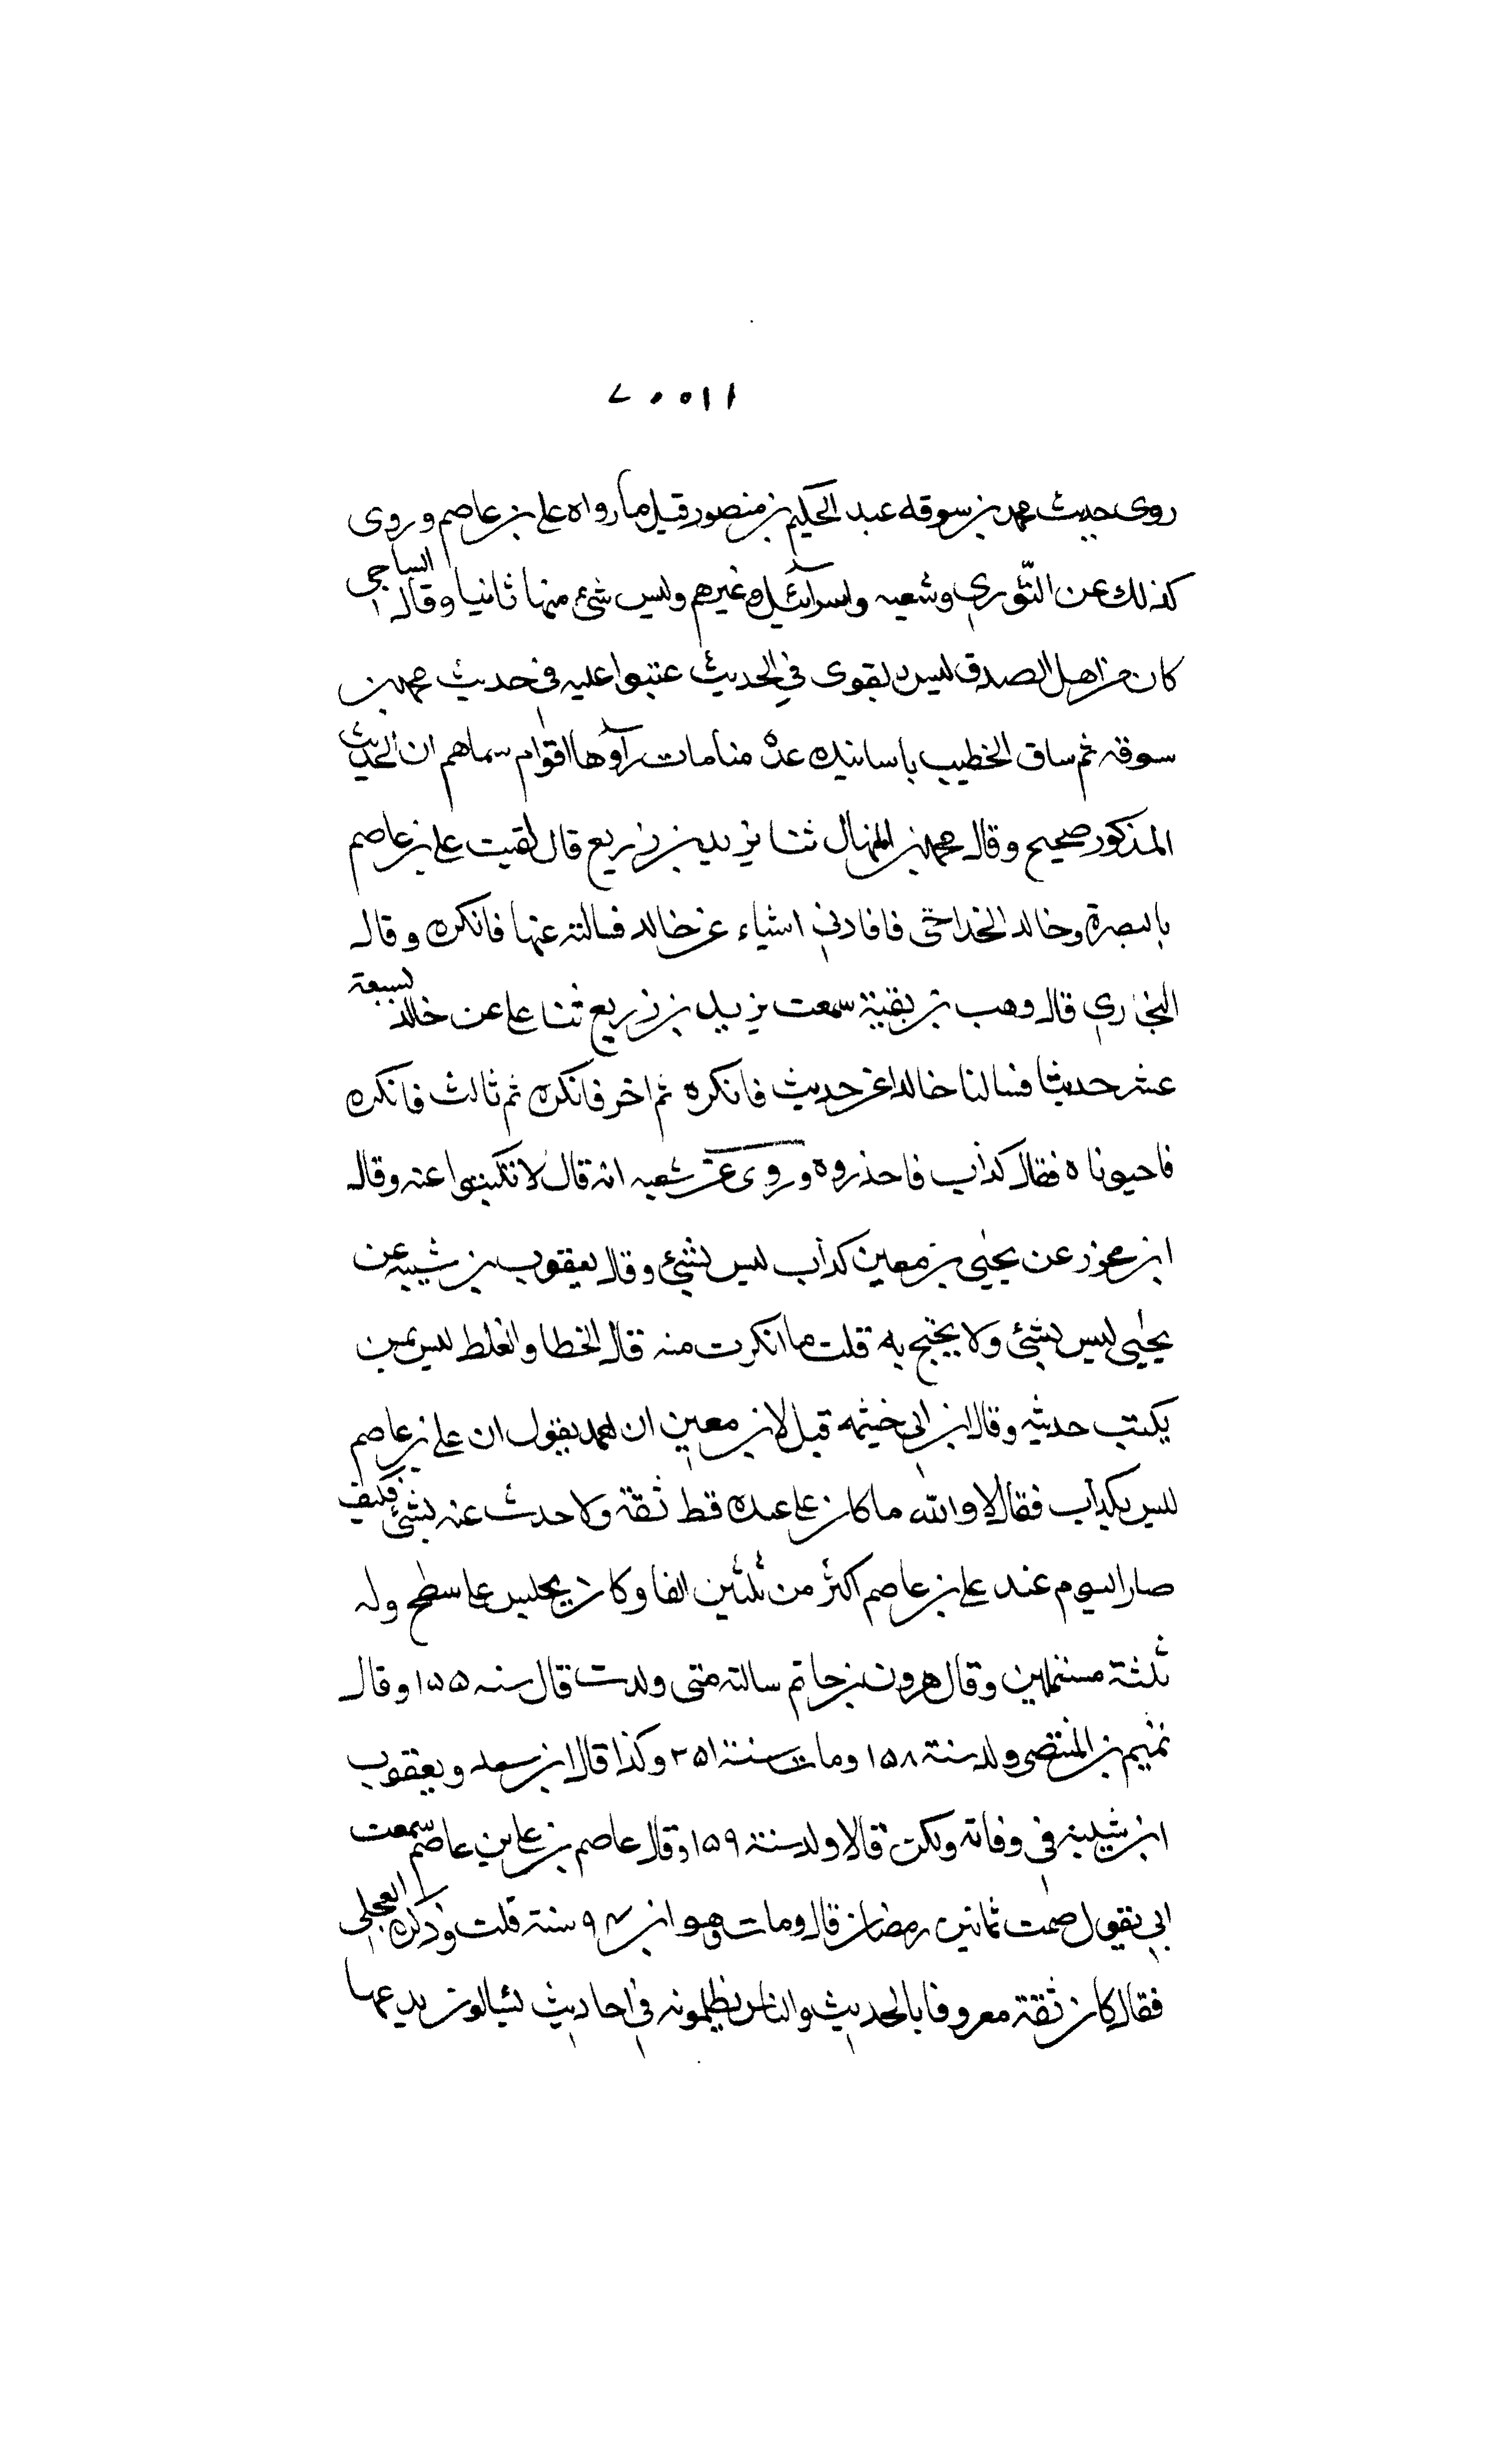 روى حديث محمد بن سوقه عبد الحكيم بن منصور قبل ما رواه على بن عاصم وروى
كذلك عن الثورى وشعبه واسرائيل وغيرهم وليس شئ منها ثانيا وقال الساجى
كان من اهل الصدق ليس بالقوى فى الحديث عتبوا عليه فى حديث محمد بن
سوقه ثم ساق الخطيب باسانيده عدة منامات رآوها اقوام سماهم ان الحديث
المذكور صحيح وقال محمد بن المنهال ثنا يزيد بن زريع قال لقيت على بن عاصم
بالبصرة وخالد الحذاحى فافادنى اشياء عن خالد فسالته عنها فانكره وقال
البخارى قال وهب بن بقية سمعت يزيد بن زريع ثنا على عن خالد لسبعة
عشر حديثا فسالنا خالدا عن حديث فانكره ثم اخر فانكره ثم ثالث فانكره
فاخبرناه فقال كذاب فاحذروه وروى عن شعبه انه قال لا تكتبوا عنه وقال
ابن محرز عن يحيى بن معين كذاب ليس بشئ وقال يعقوب بن شيبه عن
يحيى ليس بشئ ولا يحتج به قلت ما انكرت منه قال الخطا والغلط ليس ممن
يكتب حديثه وقال ابن ابى خيثمه قيل لابن معين ان احمد يقول ان على بن عاصم
ليس بكذاب فقال لا والله ما كان على عنده قط ثقة ولا حدث عنه بشئ فكيف
صار اليوم عند على بن عاصم اكثر من ثلثين الفا وكان يجلس على سطح وله
ثلثة مستملين وقال هرون بن حاتم سالته متى ولدت قال سنه ١٥٥ وقال
تميم بن المنتصر ولد سنة ١٥٨ ومات سنة ٢٥١ وكذا قال ابن سعد ويعقوب
ابن شيبه فى وفاته ولكن قالا ولد سنة ١٥٩ وقال عاصم بن على بن عاصم سمعت
ابى يقول صمت ثمانين رمضان قال ومات وهو ابن ٩٤ سنة قلت وذكره العجلى
فقال كان ثقة معروفا بالحديث والناس يظلمونه فى احاديث يسالون يدعها